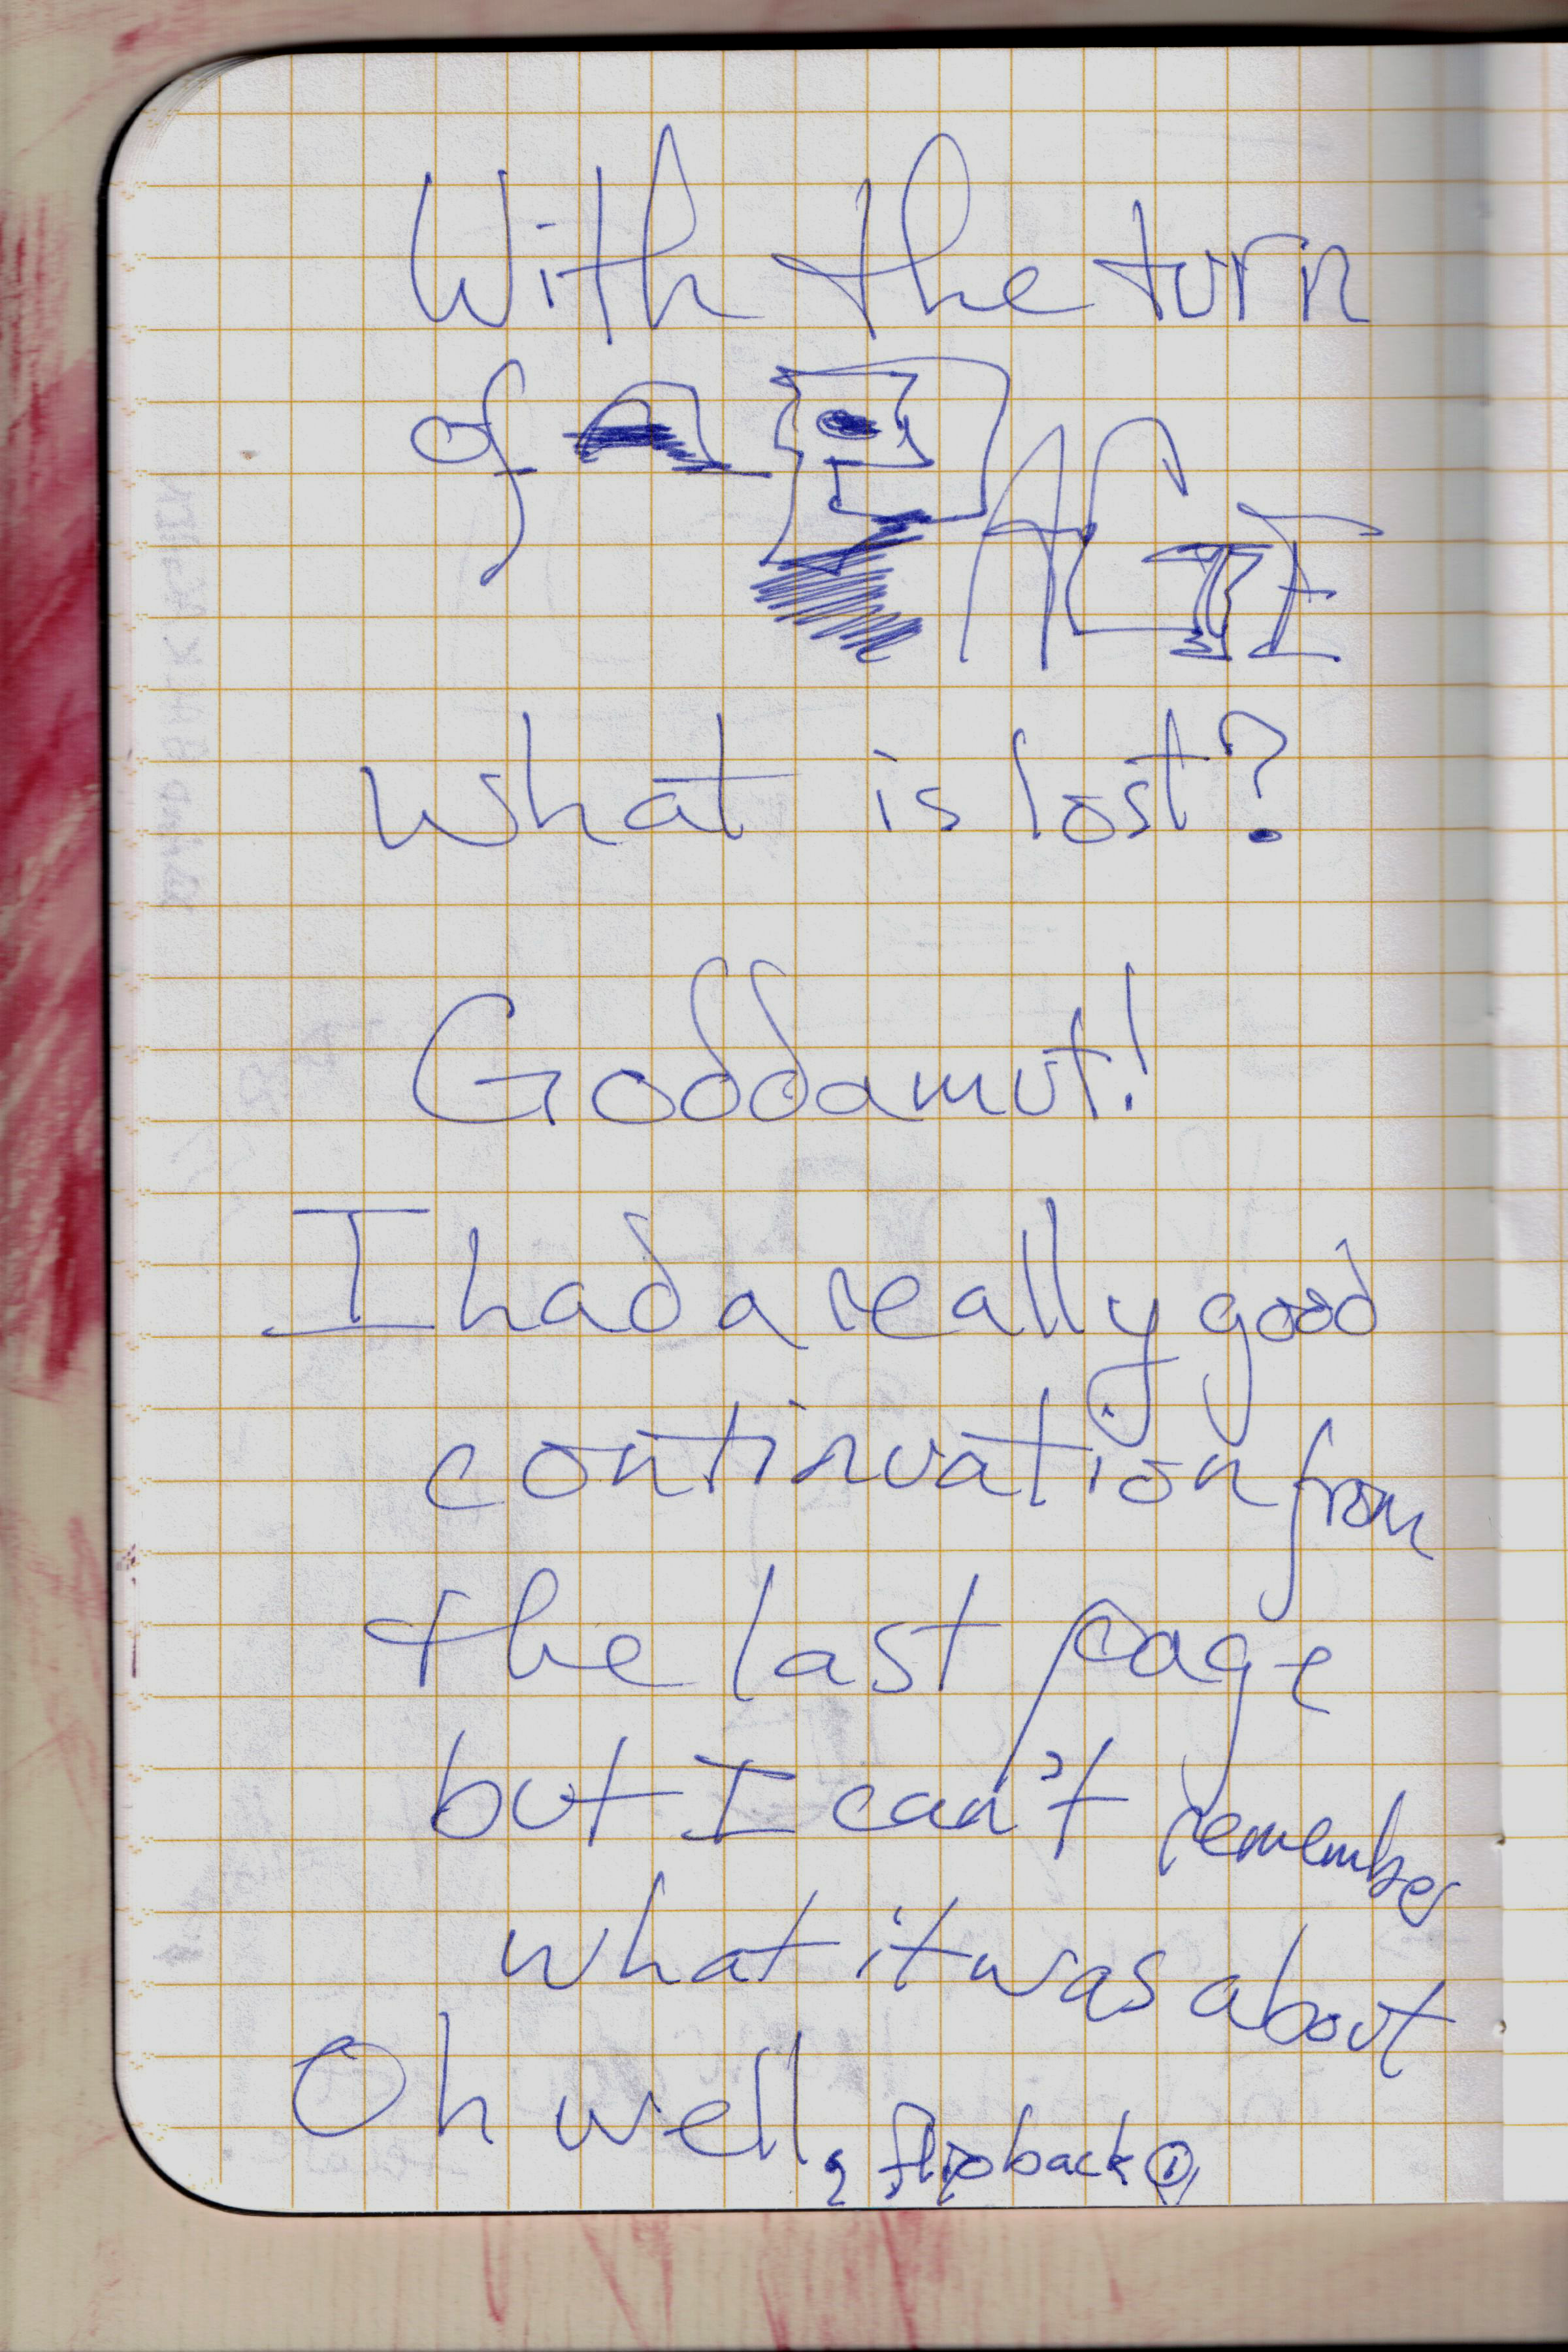 With the turn
of a PAGE
what is lost?
Goddamut!
I had a really good
continuation from
the last page
but I can't remember
what it was about
Oh well, flip back